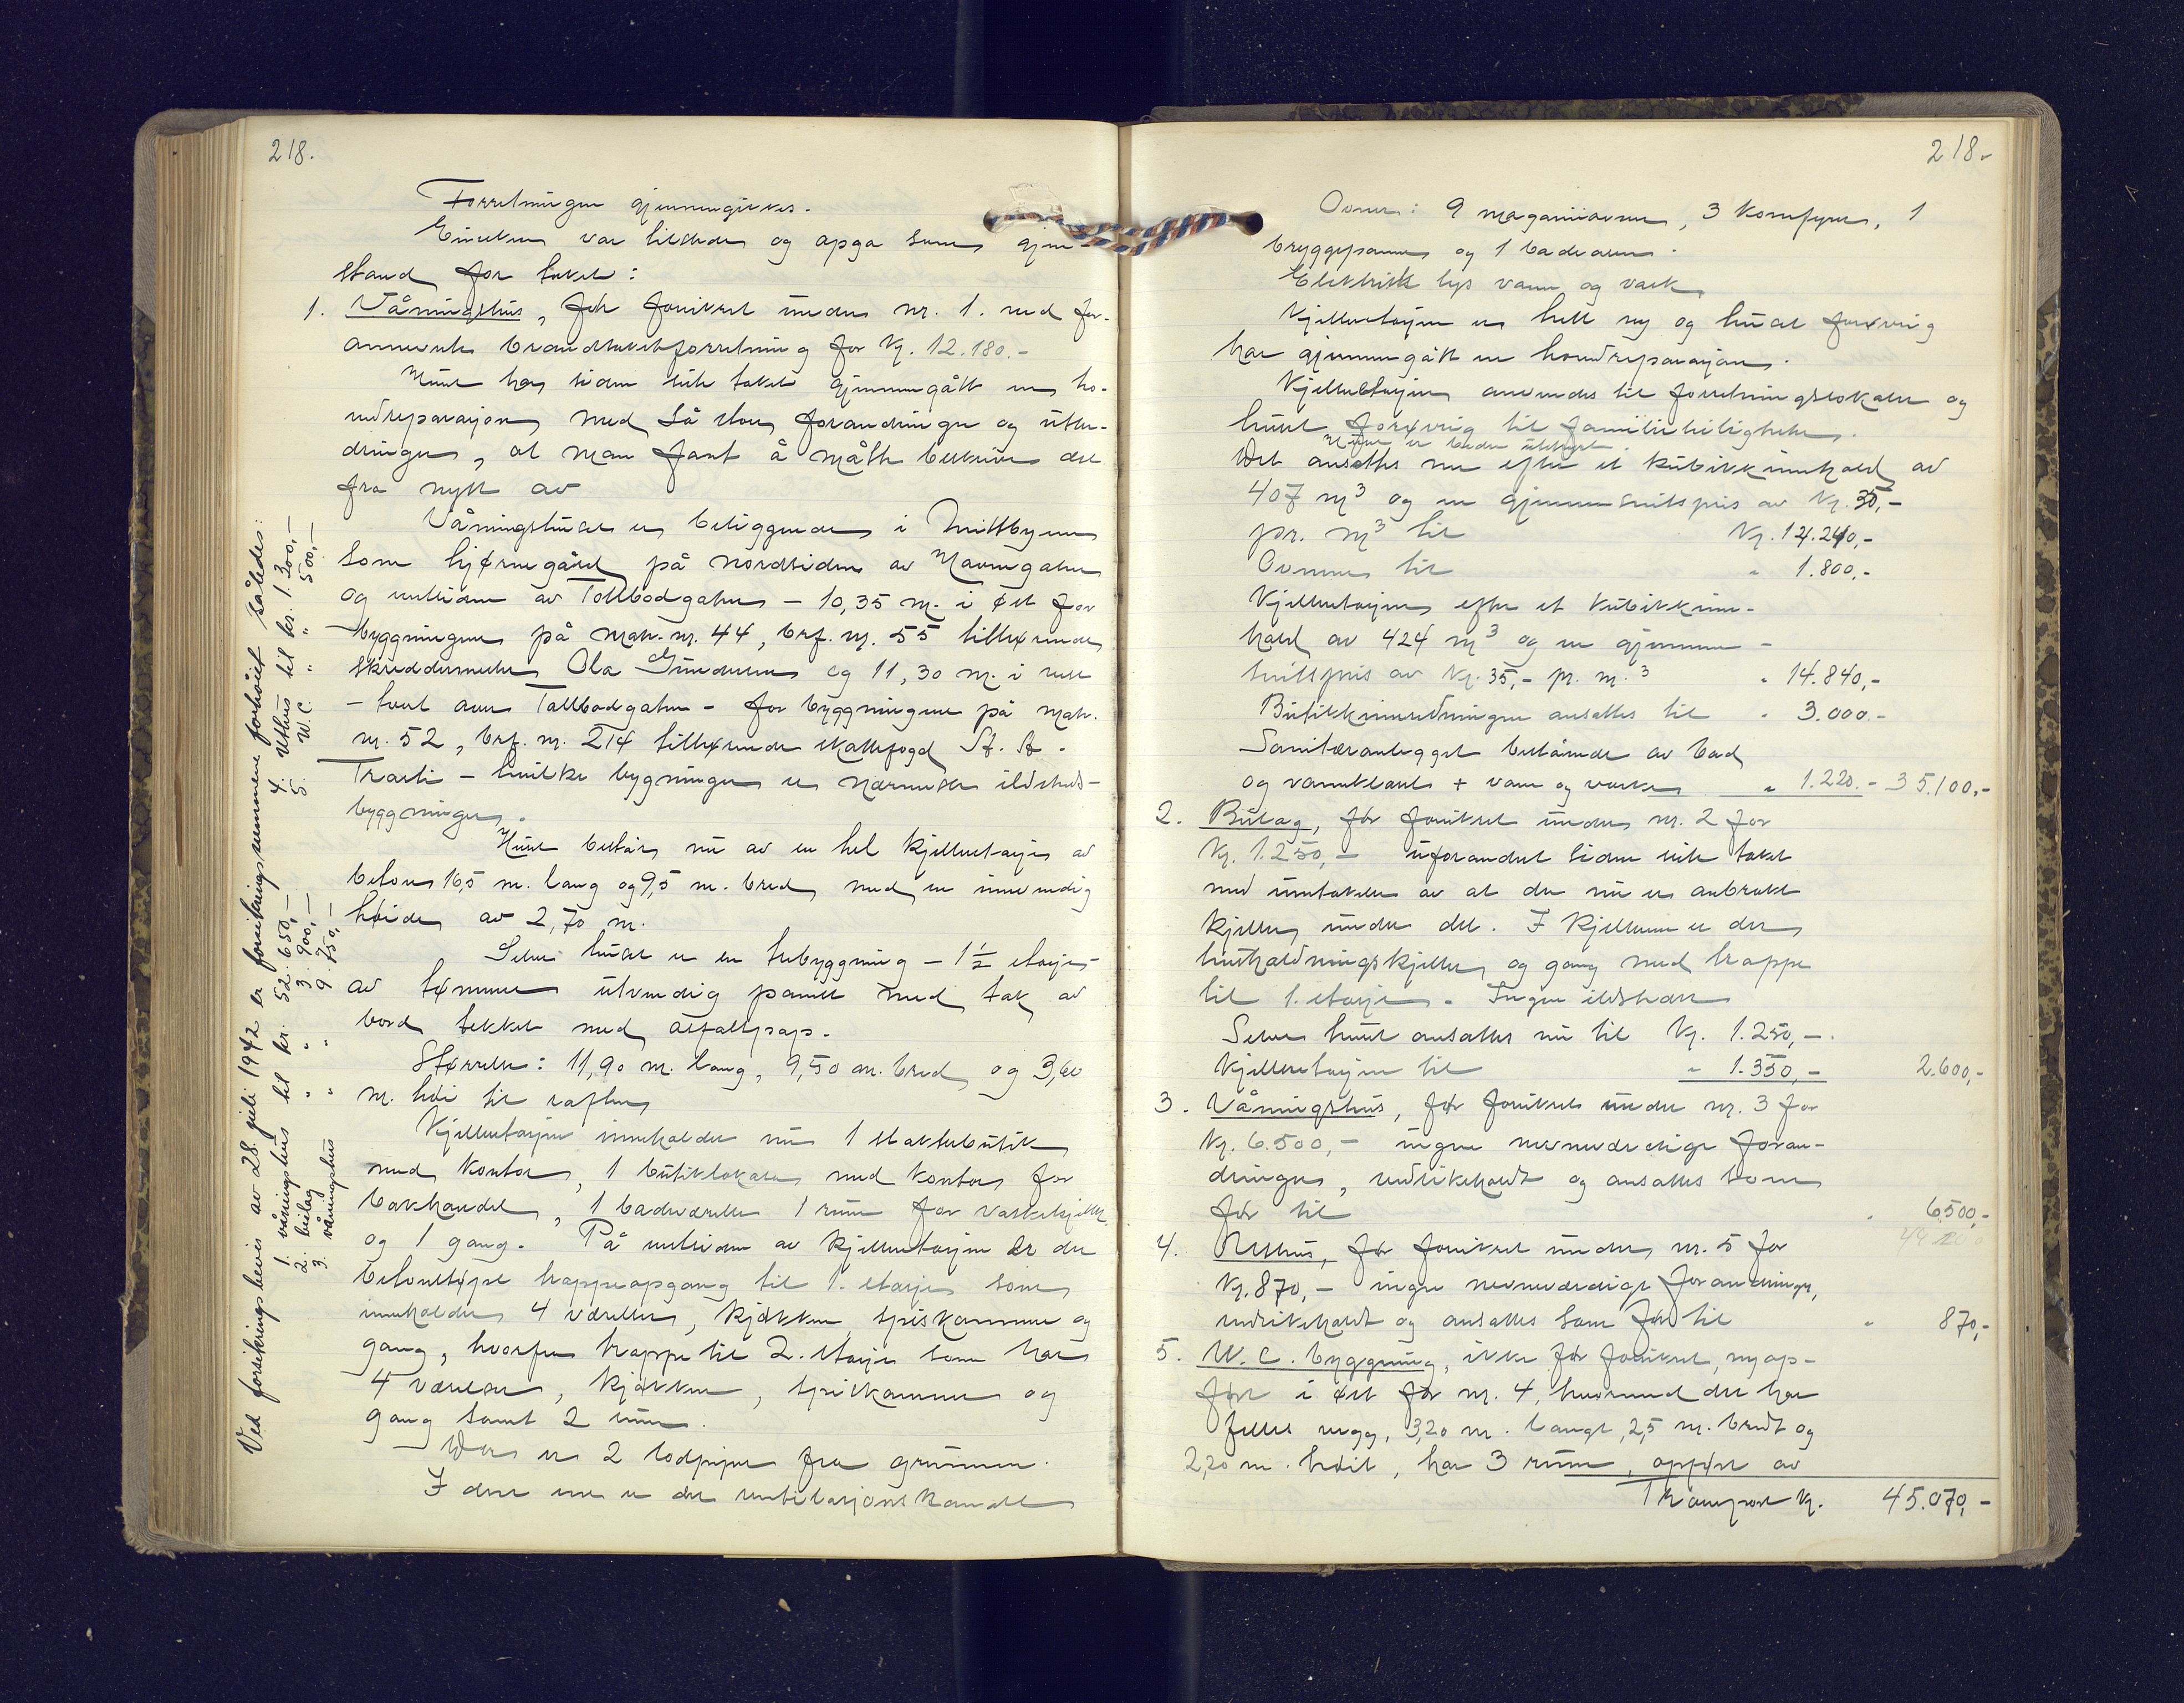 218.
Forretningen gjennemgikkes.
Eieren var tilstede og opga som gjen-
stand for takst:
1. Våningshus, før forsikret under nr. 1. ved for-
annevnte branntakstforretning for kr. 12.180.-
Huset har siden siste takst gjennemgått en ho-
vedreparasjon med så store forandringer og utbe-
dringer, at man fant å måtte beskrive det
fra nytt av
Våningshuset er beliggende i Midtbyen
som hjørnegård på nordsiden av Havnegaten
og vestsiden av Tollbodgaten - 10,35 m. i øst for
byggningene på matr. nr. 44, brf. nr. 55 tilhørende
skreddermester Ola Gundersen og 11,30 m. i vest
- tvert over Tollbodgaten - for byggningene på matr.
nr. 52, brf. nr. 214 tilhørende skattefogd St. A.
Traeti - hvilke bygninger er nærmeste ildsteds-
byggninger.
Huset består nu av en hel kjelleretasje av
betong 16,5 m. lang og 9,5 m. bred med en innvendig
høide av 2,70 m.
Selve huset er en trebyggning - 1½ etasjes
av tømmer utvendig panelt med tak av
bord tekket med asfaltpapp.
Størrelse: 11,90 m. lang, 9,50 m. bred og 3,60
m. høi til raften
Kjelleretasjen inneholder nu 1 slakterbutik
med kontor, 1 butiklokale med kontor for
bokhandel, 1 badeværelse 1 rum for vaskekjeller
og 1 gang. På vestsiden av kjelleretasjen er der
betonstøpt trappeopgang til 1. etasje som
inneholder 4 værelser, kjøkken, spiskammer og
gang, hvorfra trappe til 2. etasje som har
4 værelser, kjøkken, spiskammer og
gang samt 2 rum.
Der er 2 lodpiper fra grunnen.
I den ene er der ventilasjonskanaler
Ved forsikringsbevis av 28. juli 1942 er forsikringssummene forhøiet således:
1. våningshus til kr. 52.650,-
2. builag " " 3.900,-
3. våningshus " " 9.750,-
4. uthus til kr. 1.300,-
5. W.C. " " 500,-
218.
Ovner: 9 magasinovner, 3 komfyrer, 1
bryggepanne og 1 badeovn.
Elektrisk lys vann og vask.
Kjelleretasjen er helt ny og huset forøvrig
har gjennemgått en hovedreparasjon.
Kjelleretasjen anvendes til forretningslokaler og
huset forøvrig til familieleiligheter.
Huset er bedre utstyrt.
Det ansettes nu efter et kubikkinnhold av
407 m³ og en gjennemsnitspris av kr. 35,-
pr. m³ til kr. 14.240,-
Ovnene til " 1.800,-
Kjelleretasjen efter et kubikkinn-
hold av 424 m³ og en gjennem-
snittspris av kr. 35,- pr. m.³ " 14.840,-
Butikkinnredningen ansettes til " 3.000.-
Sanitæranlegget bestående av bad
og vannklosett + vann og vasker " 1.220.- 35.100,-
2. Builag, før forsikret under nr. 2 for
kr. 1.250,- uforandret siden siste takst
med undtakelse av at der nu er anbrakt
kjeller under det. I kjelleren er der
husholdningskjeller og gang med trappe
til 1. etasje. Ingen ildsteder
Selve huset ansettes nu til kr. 1.250,-
Kjelleretasjen til " 1.350,- 2.600,-
3. Våningshus, før forsikret under nr. 3 for
kr. 6.500,- ingen nevneverdige foran-
dringer, vedlikeholdt og ansettes som
før til " 6.500,-
4. Uthus, før forsikret under nr. 5 for
kr. 870,- ingen nevneverdige forandringer,
vedlikeholdt og ansettes som før til " 870,-
5. W.C. byggning, ikke før forsikret, nyop-
ført i øst for nr. 4, hvormed det har
felles vegg, 3,20 m. langt, 2,5 m. bredt og
2,20 m. høit, har 3 rum, opført av
Transport kr. 45.070,-